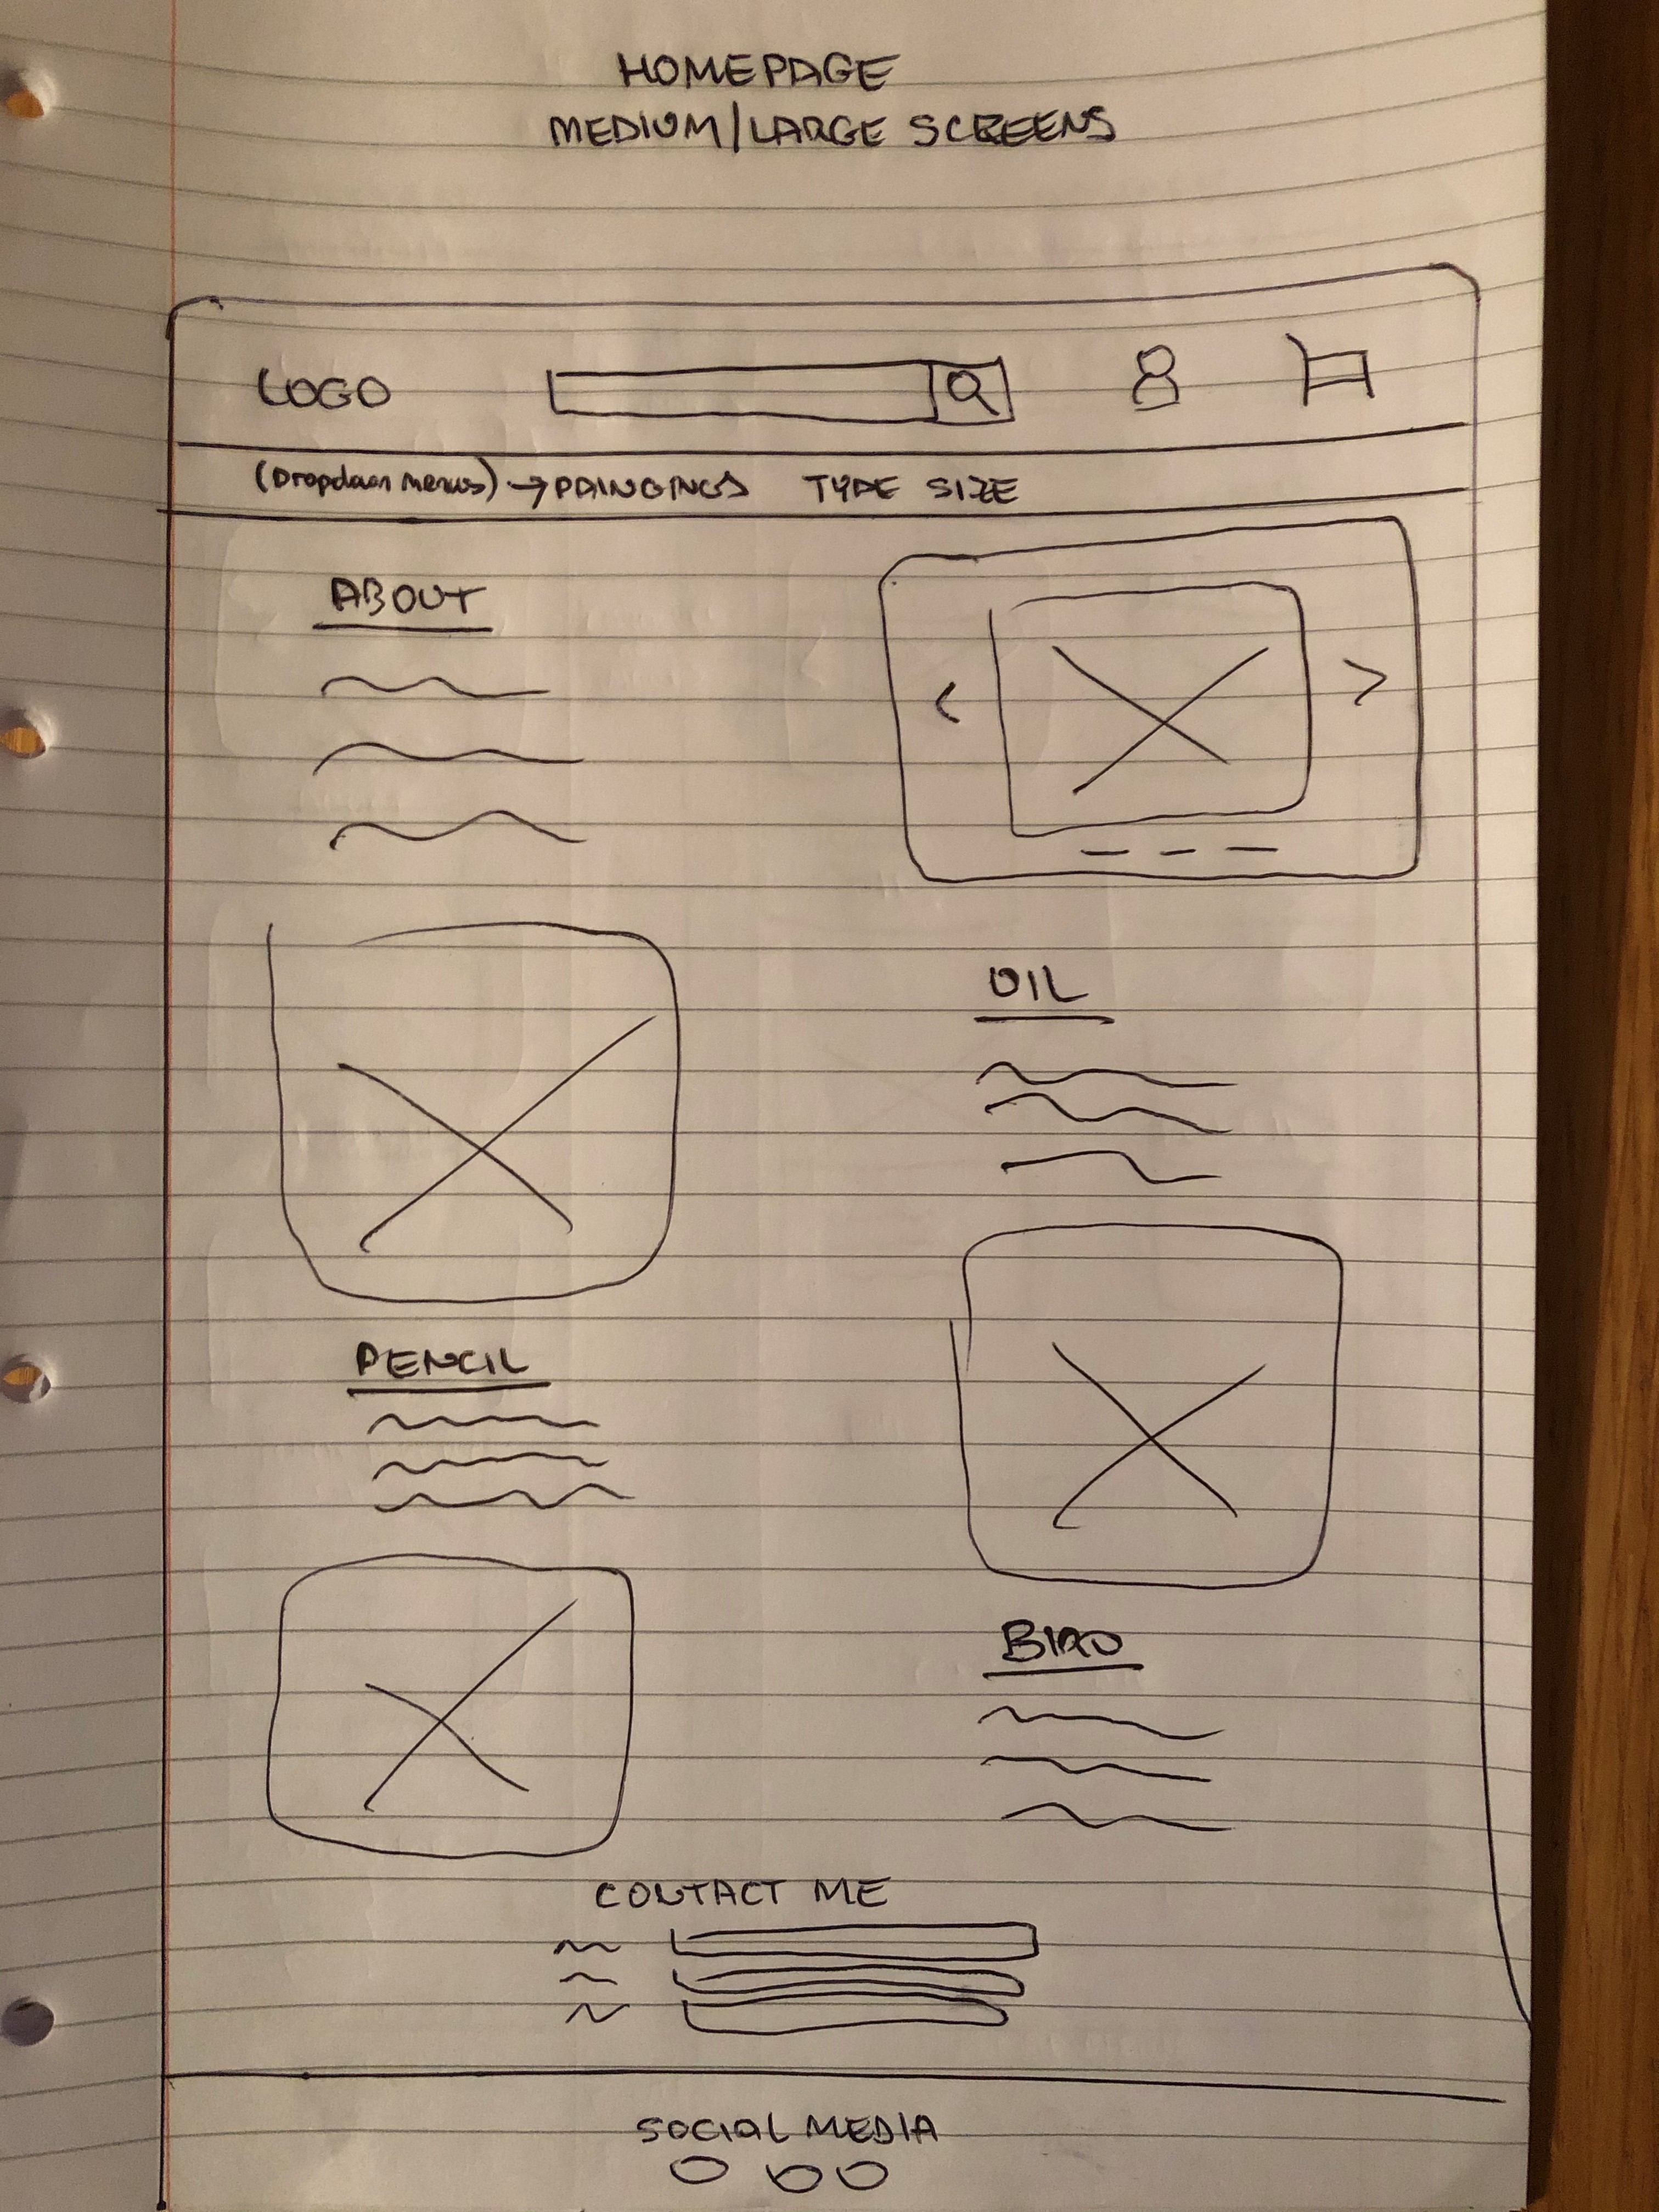 HOMEPAGE
MEDIUM/LARGE SCREENS
LOGO
(Dropdown menus) → PAINGINGS TYPE SIZE
ABOUT
OIL
PENCIL
BIRO
CONTACT ME
SOCIAL MEDIA